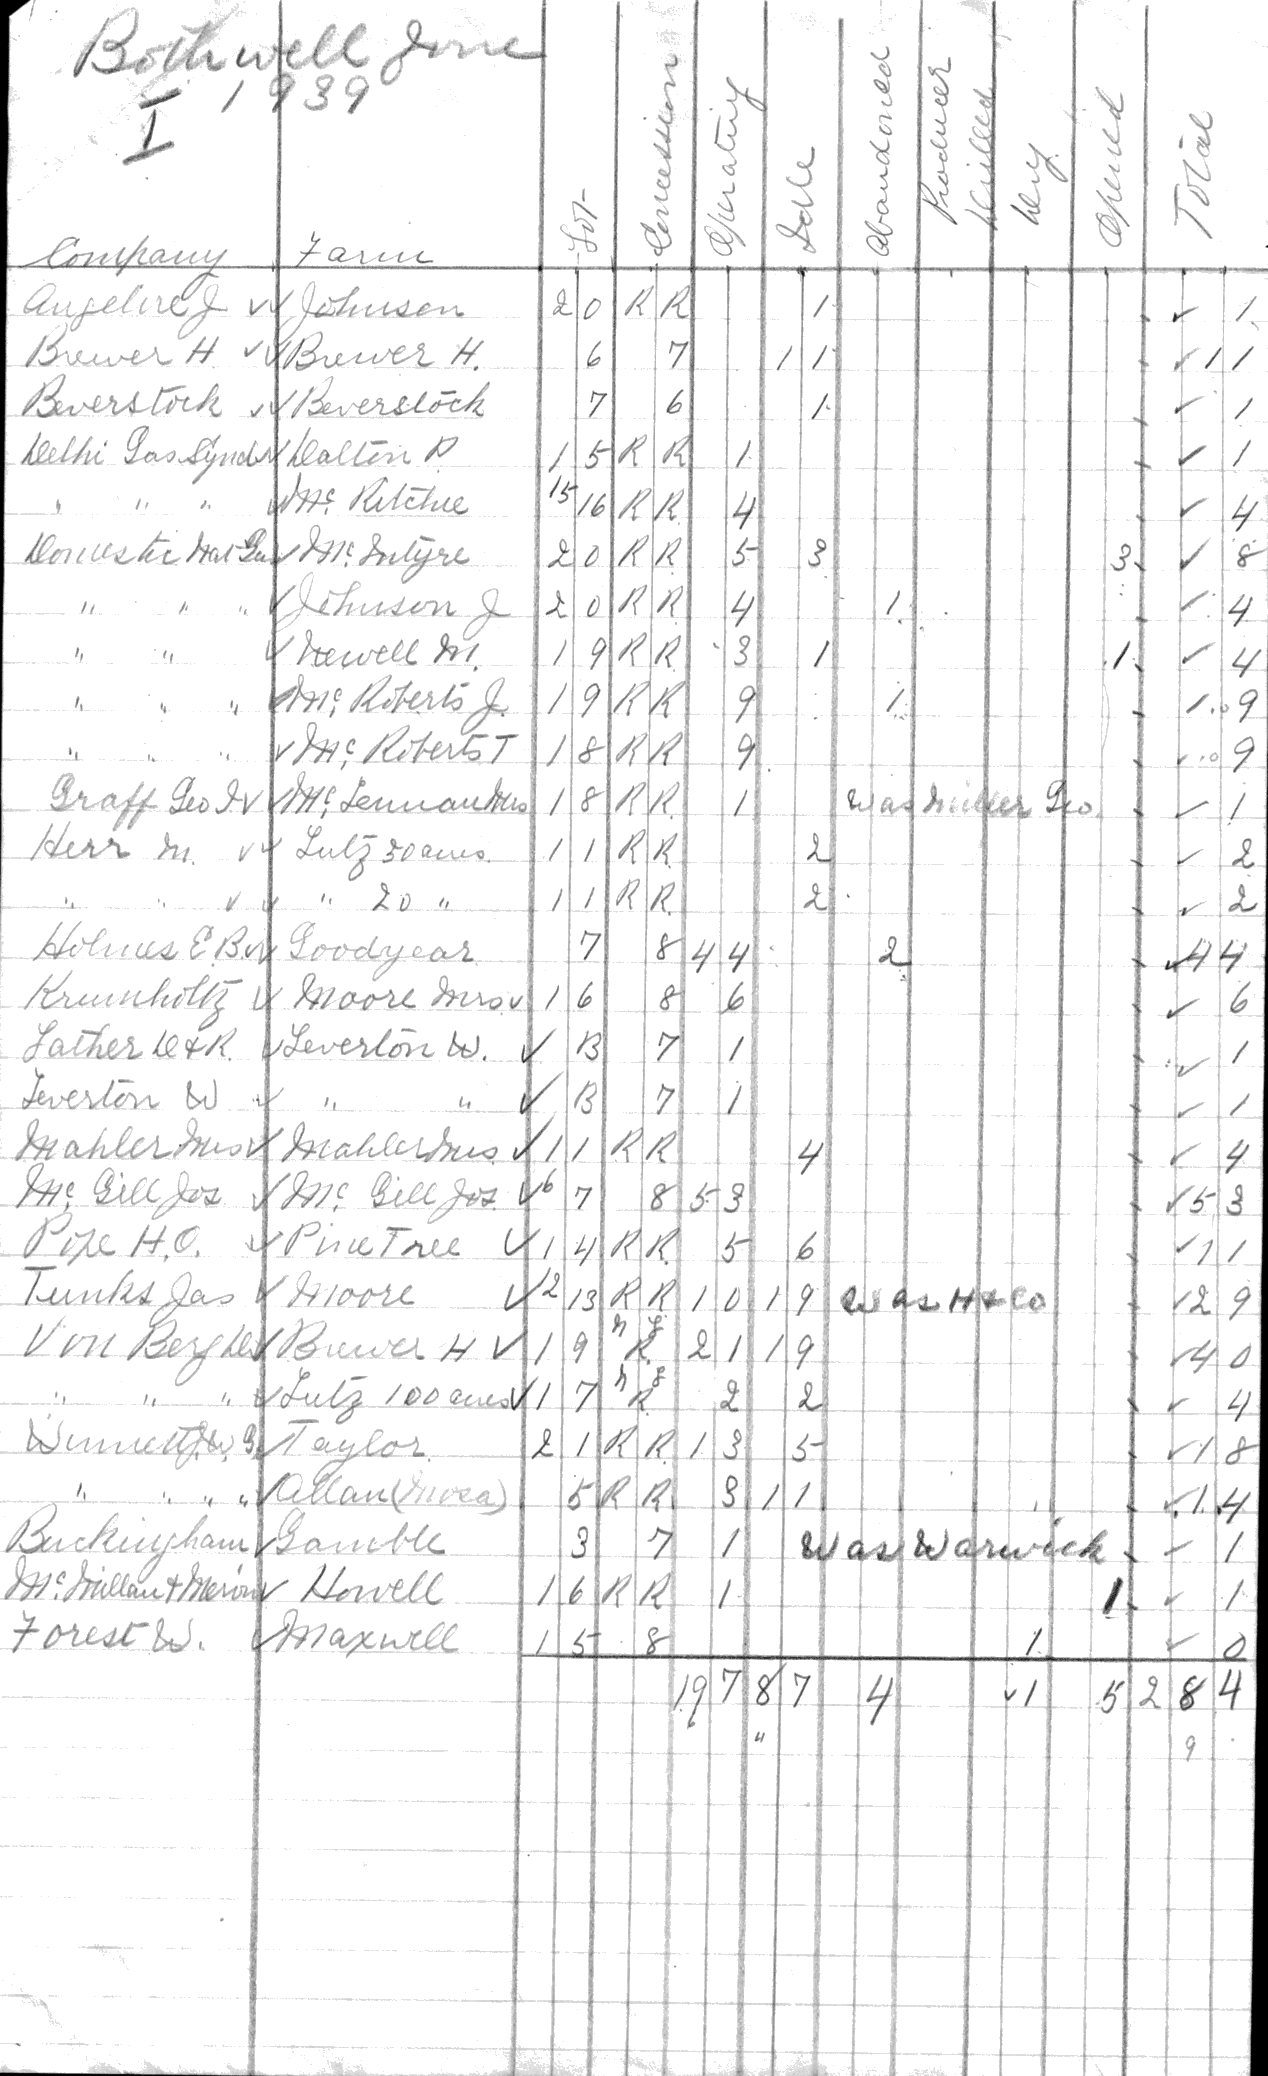 Bothwell Zone
1939
I
Company Farm Lot Concession Operating Idle Abandoned Producer Drilled Dry Opened Total
Angeline J ✓✓ Johnson 20 R R 1 ✓ 1
Brewer H ✓✓ Brewer H. 6 7 11 ✓ 11
Beverstock ✓✓ Beverstock 7 6 1 ✓ 1
Delhi Gas Synd ✓✓ Dalton P. 15 R R 1 ✓ 1
" " " ✓ Mc Ritchie 15 16 R R 4 ✓ 4
Domestic Nat Gas ✓ Mc Intyre 20 R R 5 3 3 ✓ 8
" " " ✓ Johnson J 20 R R 4 1 ✓ 4
" " ✓ Newell M. 19 R R 3 1 1 ✓ 4
" " " ✓ Mc Roberts J. 19 R R 9 1 ✓ 9
" " " ✓ Mc Roberts T 18 R R 9 ✓ 9
Graff Geo ✓✓ Mc Lennan Mrs 18 R R 1 Was Miller Geo. ✓ 1
Herr M. ✓✓ Lutz 50 acres 11 R R 2 ✓ 2
" " ✓✓ " 20 " 11 R R 2 ✓ 2
Holmes E.B. ✓✓ Goodyear 7 8 44 2 ✓ 44
Krumholtz ✓ Moore Mrs ✓ 16 8 6 ✓ 6
Lather D & R. ✓ Leverton W. ✓ B 7 1 ✓ 1
Leverton W ✓ " " ✓ B 7 1 ✓ 1
Mahler Mrs ✓ Mahler Mrs ✓ 11 R R 4 ✓ 4
Mc Gill Jos ✓ Mc Gill Jos. ✓ 6 7 8 53 ✓ 53
Pope H.O. ✓ Pine Tree ✓ 14 R R 5 6 ✓ 11
Tunks Jas ✓ Moore ✓ 12 13 R R 10 19 Was H & Co ✓ 29
Von Berg ✓ Brewer H ✓ 19 R. 21 19 ✓ 40
" " " ✓ Lutz 100 acres ✓ 17 R 2 2 ✓ 4
Winnett J.W. ✓ Taylor 21 R R 13 5 ✓ 18
" " " " ✓ Allan (Mosa) 5 R R 3 11 ✓ 14
Buckingham ✓ Gamble 3 7 1 Was Warwick ✓ 1
Mc Millan & ✓ Howell 16 R R 1 1 ✓ 1
Forest W. ✓ Maxwell 15 8 1 ✓ 0
197 87 4 ✓ 1 5 284
" 9